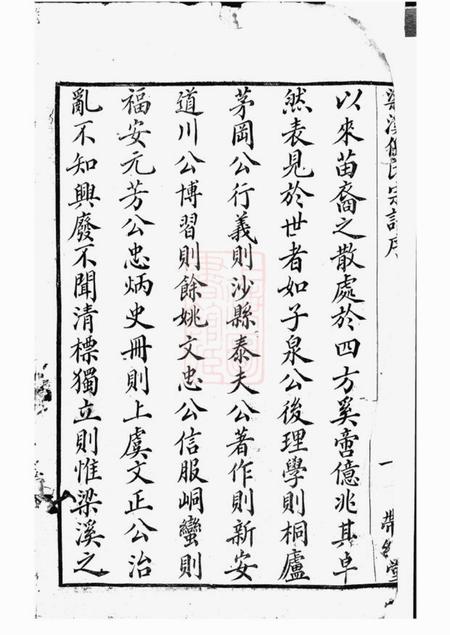 以來苗裔之散處於四方奚啻億兆其卓
然表見於世者如子泉公後理學則桐廬
茅岡公行義則沙縣泰夫公著作則新安
道川公博習則餘姚文忠公信服峒蠻則
福安元芳公忠炳史冊則上虞文正公治
亂不知興廢不聞清標獨立則惟梁溪之